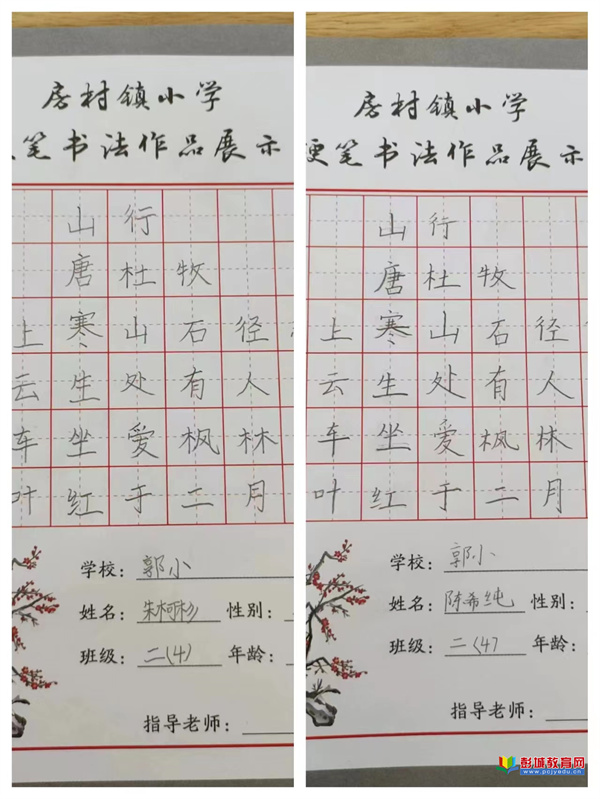 房村镇小学
笔书法作品展示
山行
唐杜牧
上寒山石径
云生处有人
车坐爱枫林
叶红于二月
学校：郭小
姓名：朱柯杉 性别：
班级：二(4) 年龄：
指导老师：
房村镇小学
硬笔书法作品展示
山行
唐杜牧
上寒山石径
云生处有人
车坐爱枫林
叶红于二月
学校：郭小
姓名：陈希纯 性别：
班级：二(4) 年龄：
指导老师：
彭城教育网
www.pcjyedu.cn